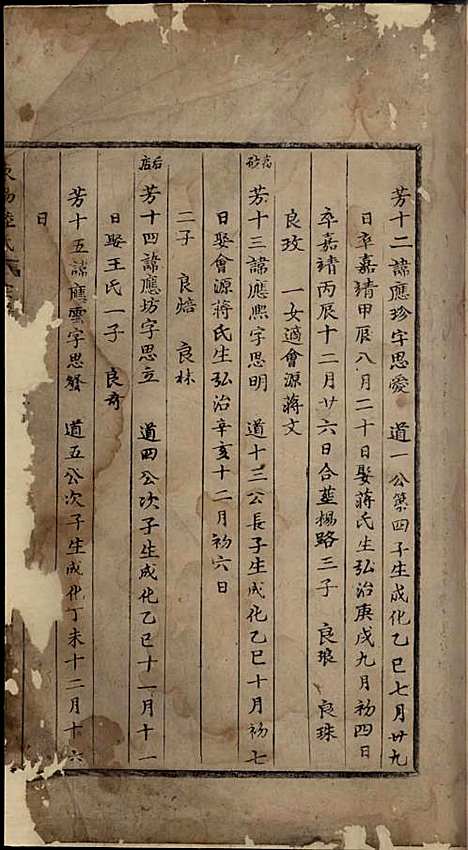 芳十二諱應珍字思愛　道一公第四子生成化乙巳七月廿九
日卒嘉靖甲辰八月二十日娶蔣氏生弘治庚戌九月初四日
卒嘉靖丙辰十二月廿六日合葬楊路三子　良琅　良珠
良玫　一女適會源蔣文
芳十三諱應熙字思明　道十三公長子生成化乙巳十月初七
日娶會源蔣氏生弘治辛亥十二月初六日
二子　良焙　良林
后店
芳十四諱應坊字思立　道四公次子生成化乙巳十一月十一
日娶王氏一子　良奇
芳十五諱應雲字思發　道五公次子生成化丁未十二月十六
日